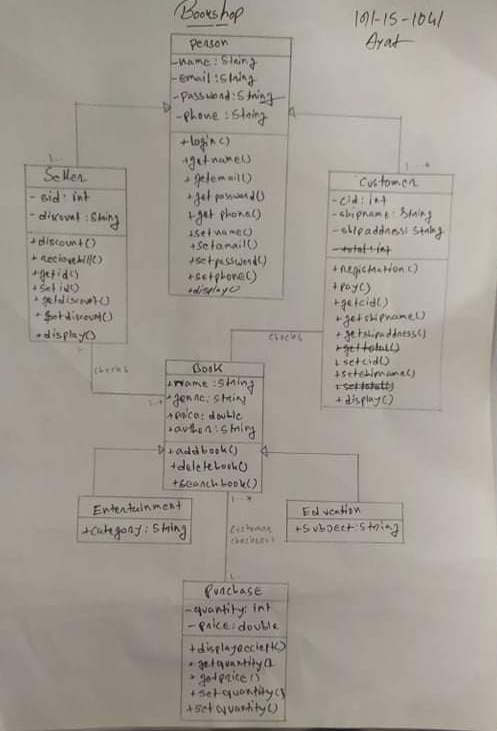 Bookshop
191-15-1041
Ayat
person
-name: String
-email: String
-password: String
-phone: String
+login()
+getname()
+getemail()
+getpassword()
+get phone()
+setname()
+setamail()
+setpassword()
+setphone()
+display()
1..
Seller
- sid: int
- discount: String
+discount()
+getid()
+setid()
+getdiscount()
+setdiscount()
+display()
1..*
Customer
-cid: int
-shipname: String
-shipaddress: String
-total: int
+registration()
+pay()
+getcid()
+getshipname()
+getshipaddress()
+gettotal()
+setcid()
+setshipname()
+settotal()
+display()
checks
checks
1..*
Book
+name: String
+genre: String
+price: double
+author: String
+addbook()
+deletebook()
+searchbook()
Entertainment
+category: String
Education
+Subject: String
1..*
1..
Purchase
-quantity: int
-price: double
+getquantity()
+getprice()
+setquantity()
+setquantity()